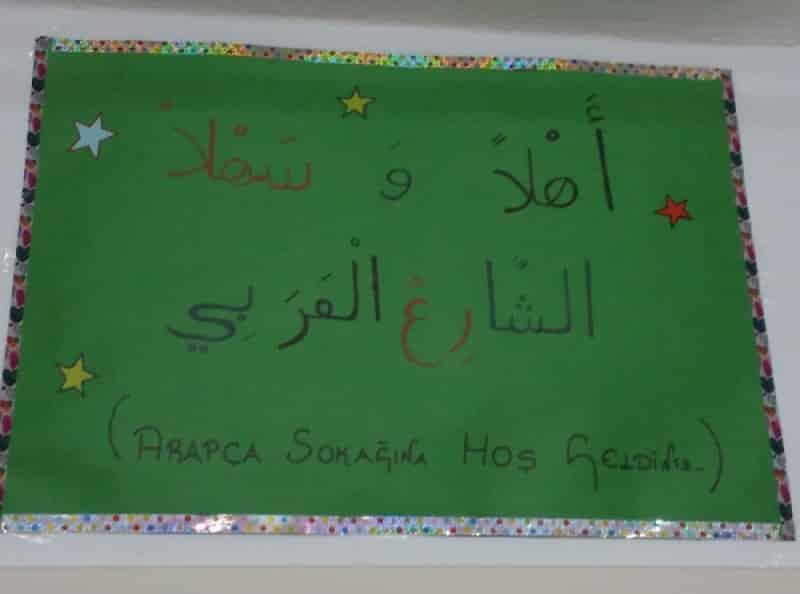 أَهْلاً وَ سَهْلاً
الشَّارِعْ الْعَرَبِي
(ARAPÇA SOKAĞINA HOŞ GELDİNİZ..)